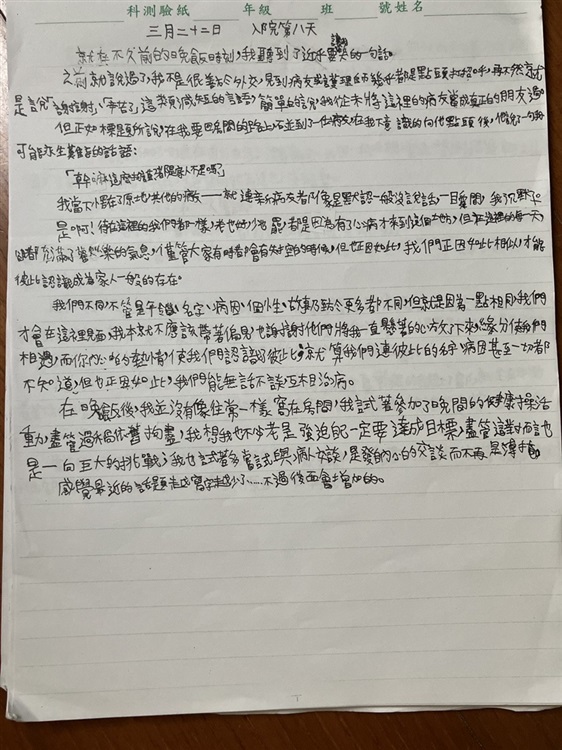 科測驗紙 年級 班 號姓名
三月二十二日 入院第八天
就在不久前的晚飯時刻,我聽到了近乎 的一句話。
之前就說過了,我不是很擅長外交,見到病友與護理師幾乎都是點頭打招呼,再不然就
是說「謝謝」、「辛苦了」這類簡短的言語,簡單的說,我從未將這裡的病友當成真正的朋友過。
但正如標題所說,在我要回房間的路上,碰到了一位病友,在我下意識的向他點頭後,他說了一句我
可能永生難忘的話語:
「幹嘛這麼 家人不是嗎?」
我當下愣在了原地,其他的病友——就連新病友都像是默認一般沒說話,一瞬間,我沉默了。
是啊!待在這裡的我們都一樣,老也好,少也罷,都是因為有了心病才來到這個地方,但在這裡的每一天,
都充滿了 樂的氣息,儘管大家有時都會有失控的時候,但也正因如此,我們正因如此相似,才能
彼此認識成為家人一般的存在。
我們不同,不管是年齡、名字、病因、個性、故事乃至今更多都不同,但就是因為一點相同,我們
才會在這裡見面,我本就不應該帶著偏見,也謝謝他們將我一直懸著的心放了下來,緣分使我們
相遇,而你 的熱情使我們認識了彼此,就算我們連彼此的名字、病因甚至一切都
不知道,但也正因如此,我們能無話不談,互相治病。
在晚飯後,我並沒有像往常一樣窩在房間,我試著參加了晚間的健康操活
動,儘管過程依舊拘謹,我想我也不必老是強迫自己一定要達成目標,儘管這對我而言也
是一項巨大的挑戰,我也試著多嘗試與病友談,是發自內心的交談,而不再是
感覺最近的話題越寫字越少了……不過後面會增加的。